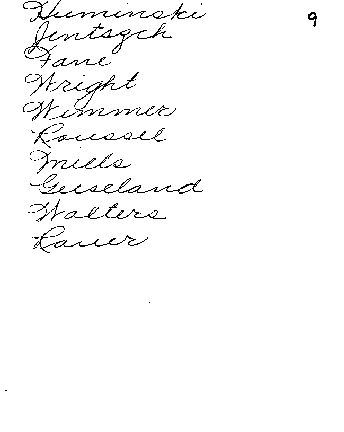 Huminski 9
Jentszch
Fane
Wright
Wimmer
Roussel
Mills
Geiseland
Walters
Rauer